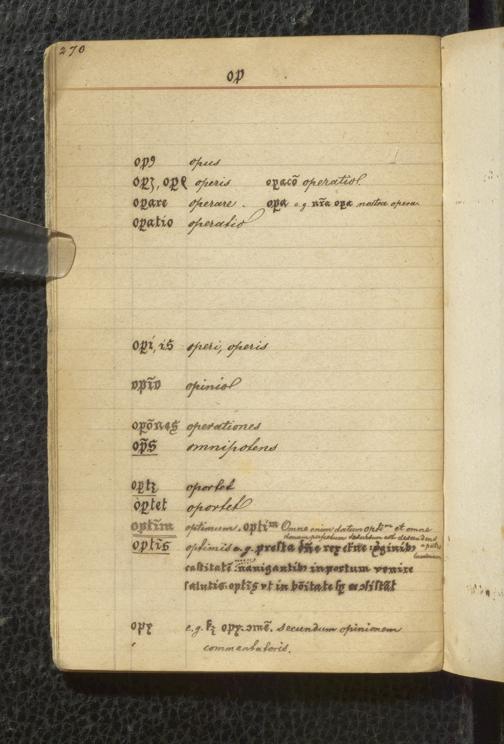 270
op
op9 opus
opʒ, opꝭ operis opacō operatiol.
opare operare. opa e.g. nr̄a opa nostra opera
opatio operatio
opi, is operi, operis
opīo opiniol
opōnes operationes
op̄s omnipotens
optʒ oportet
optet oportet
optīm optimum. optiᵐ Omne enim datum optᵐ et omne
donum perfectum desursum est descendens
optīs optimis e.g. presta dn̄e rex
castitatē nauigantibʒ in portum venire
salutis optīs vt in bōitate
opʒ e.g. opʒ cmē. secundum opinionem
commentatoris.